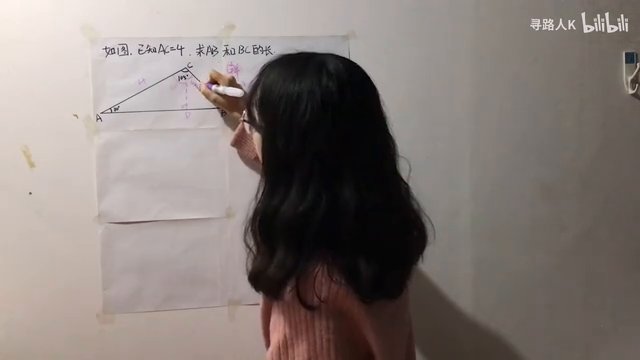 寻路人K bilibili
如图，已知AC=4，求AB和BC的长
C
105°
4
A
30°
D